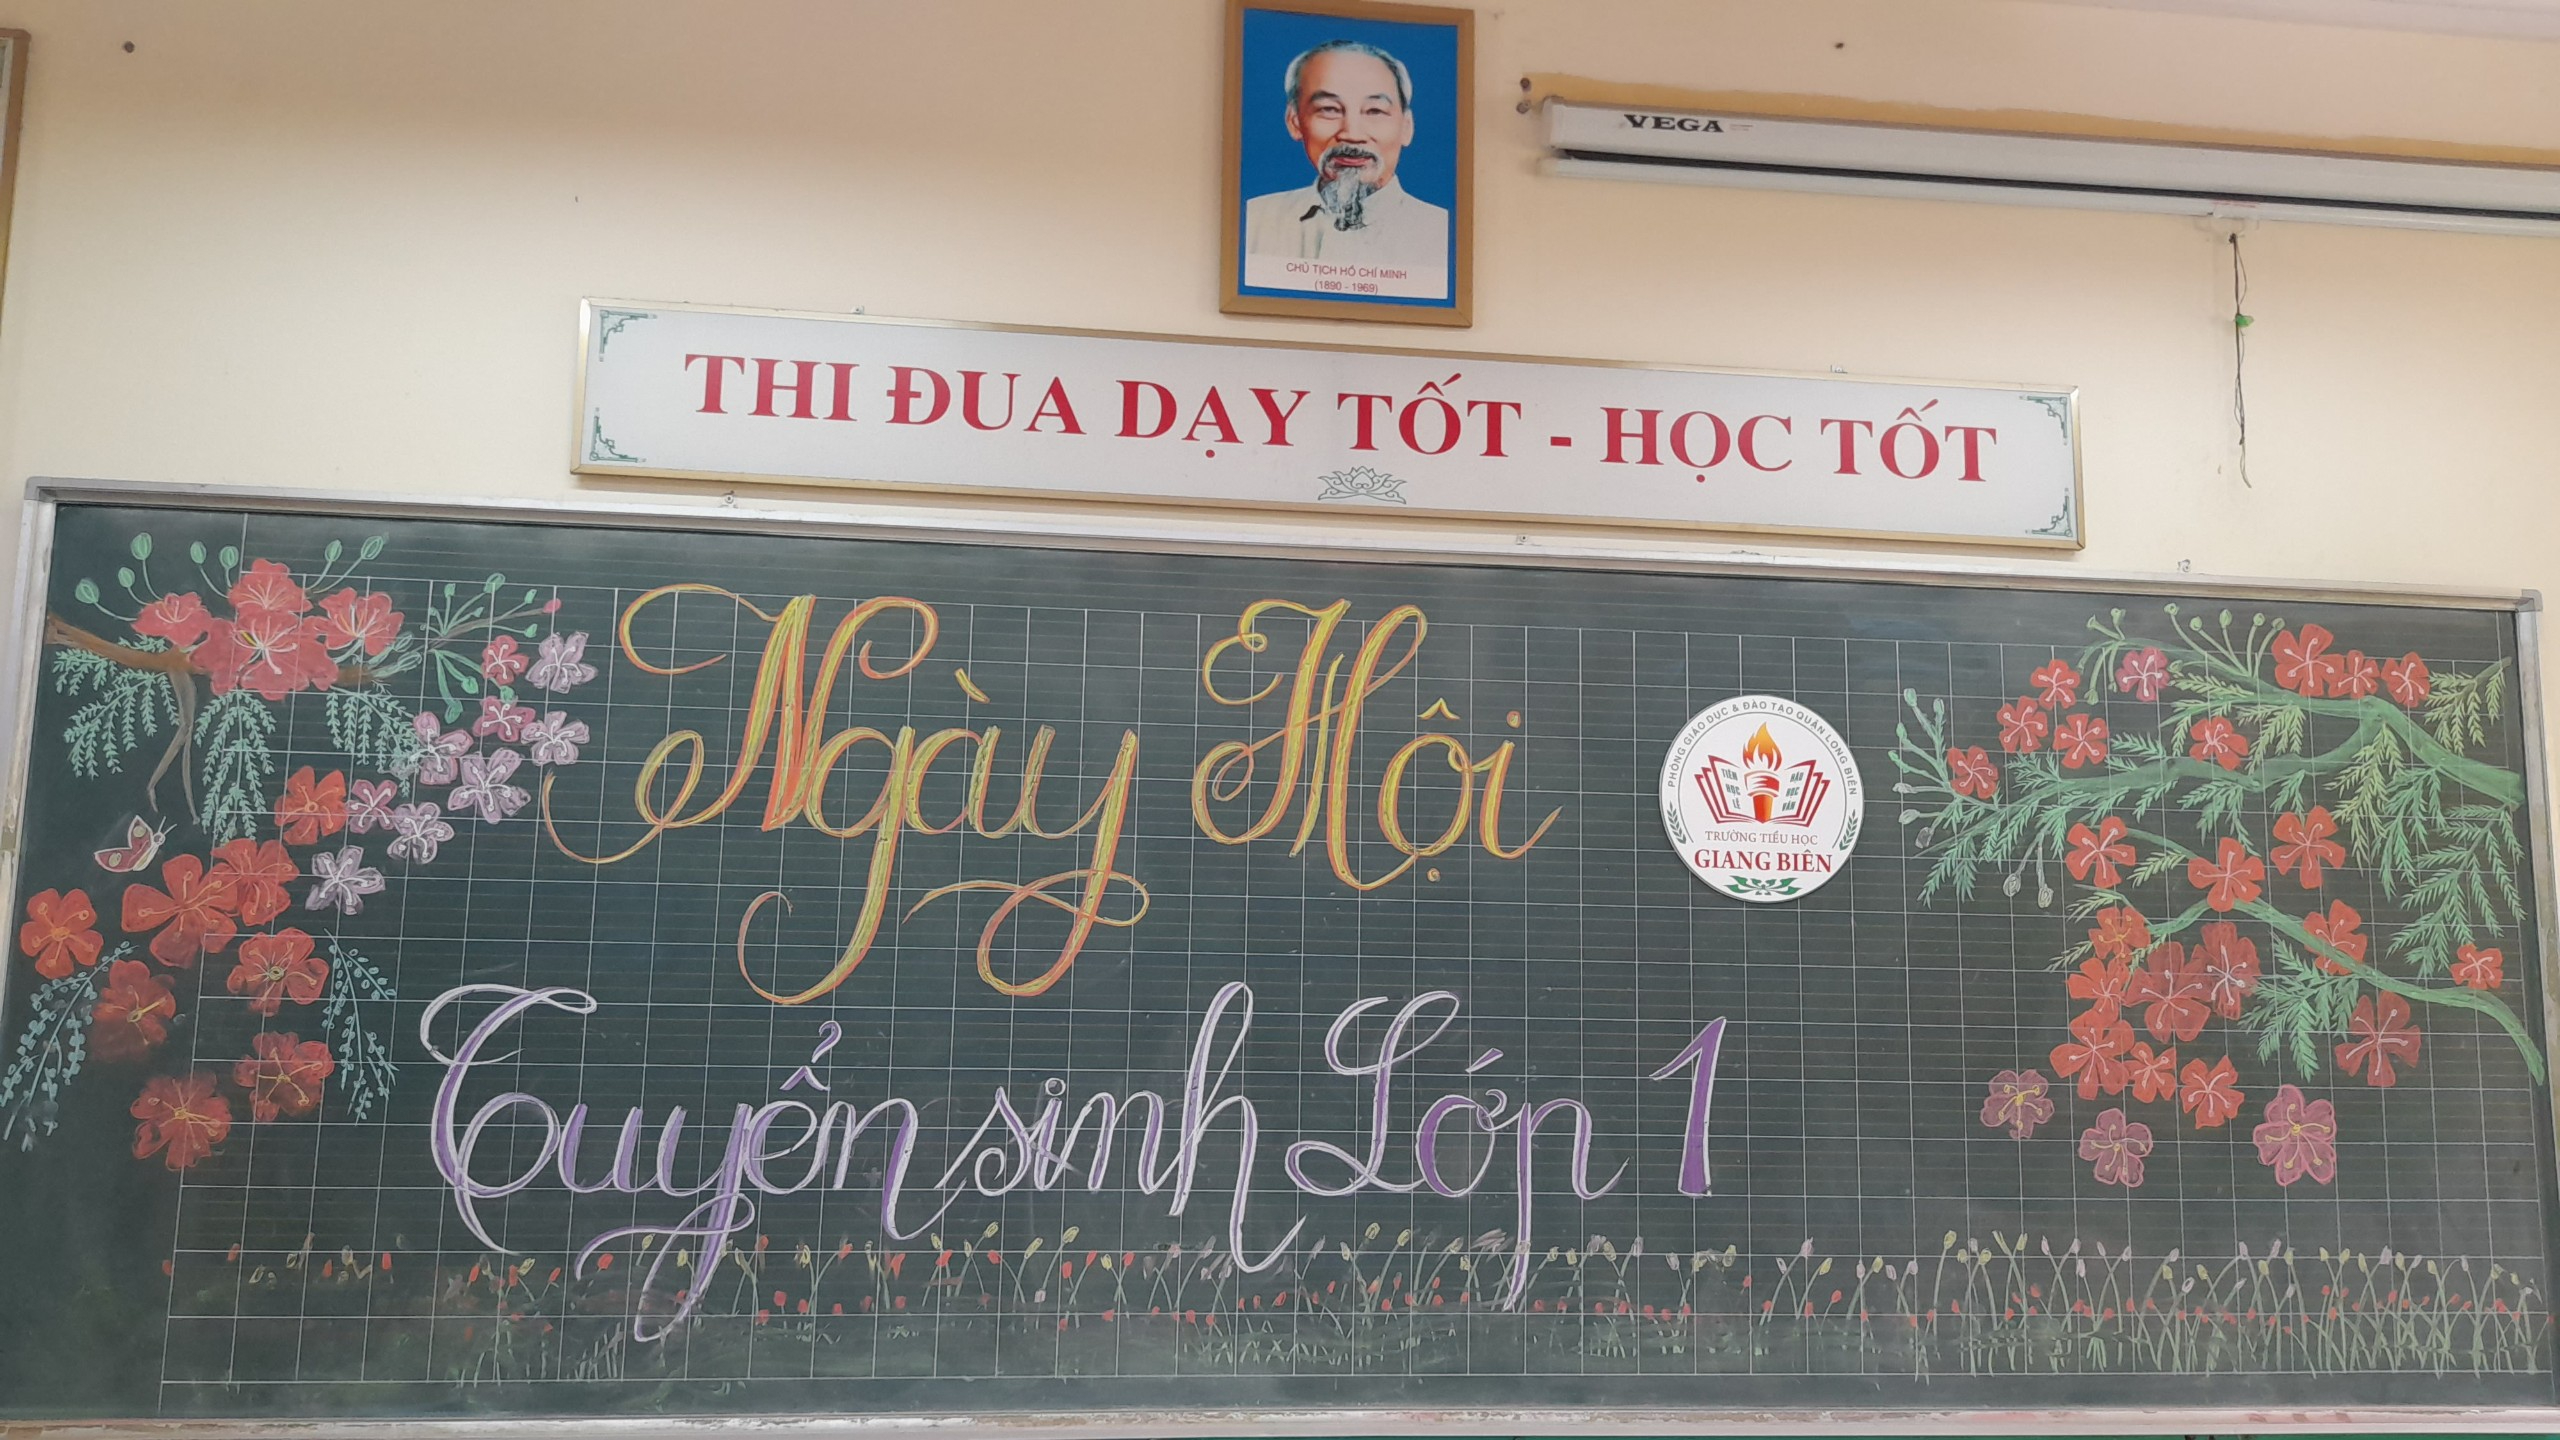 CHỦ TỊCH HỒ CHÍ MINH
(1890 - 1969)
VEGA
THI ĐUA DẠY TỐT - HỌC TỐT
Ngày Hội
PHÒNG GIÁO DỤC & ĐÀO TẠO QUẬN LONG BIÊN
TIÊN HẬU
HỌC HỌC
LỄ VĂN
TRƯỜNG TIỂU HỌC
GIANG BIÊN
Tuyển sinh Lớp 1